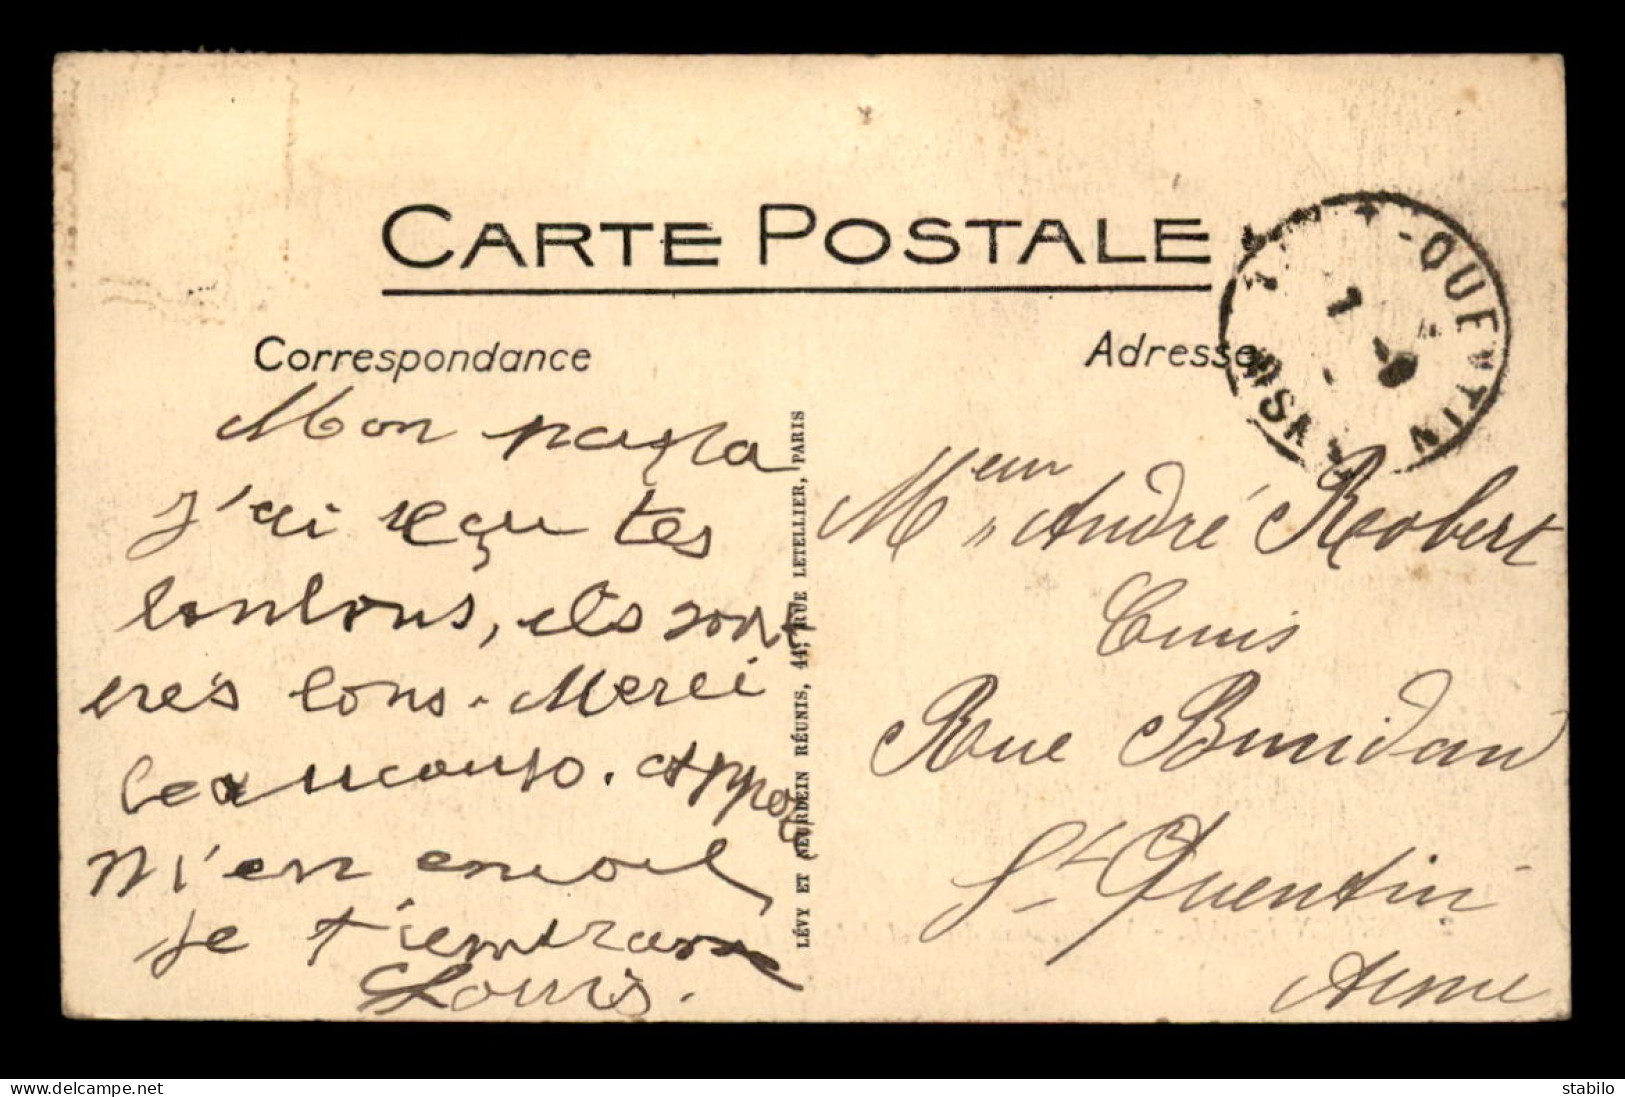 CARTE POSTALE
Correspondance
Adresse
QUENTIN
AISNE
7 -9
Mon papa
j'ai reçu tes
bonbons, ils sont
tres bons. Merci
beaucoup.
m'en envoie
je t'embrasse
Louis.
LÉVY ET NEURDEIN RÉUNIS, 44, RUE LETELLIER, PARIS
M André Robert
Rue Buridan
St Quentin
Aisne
stabilo